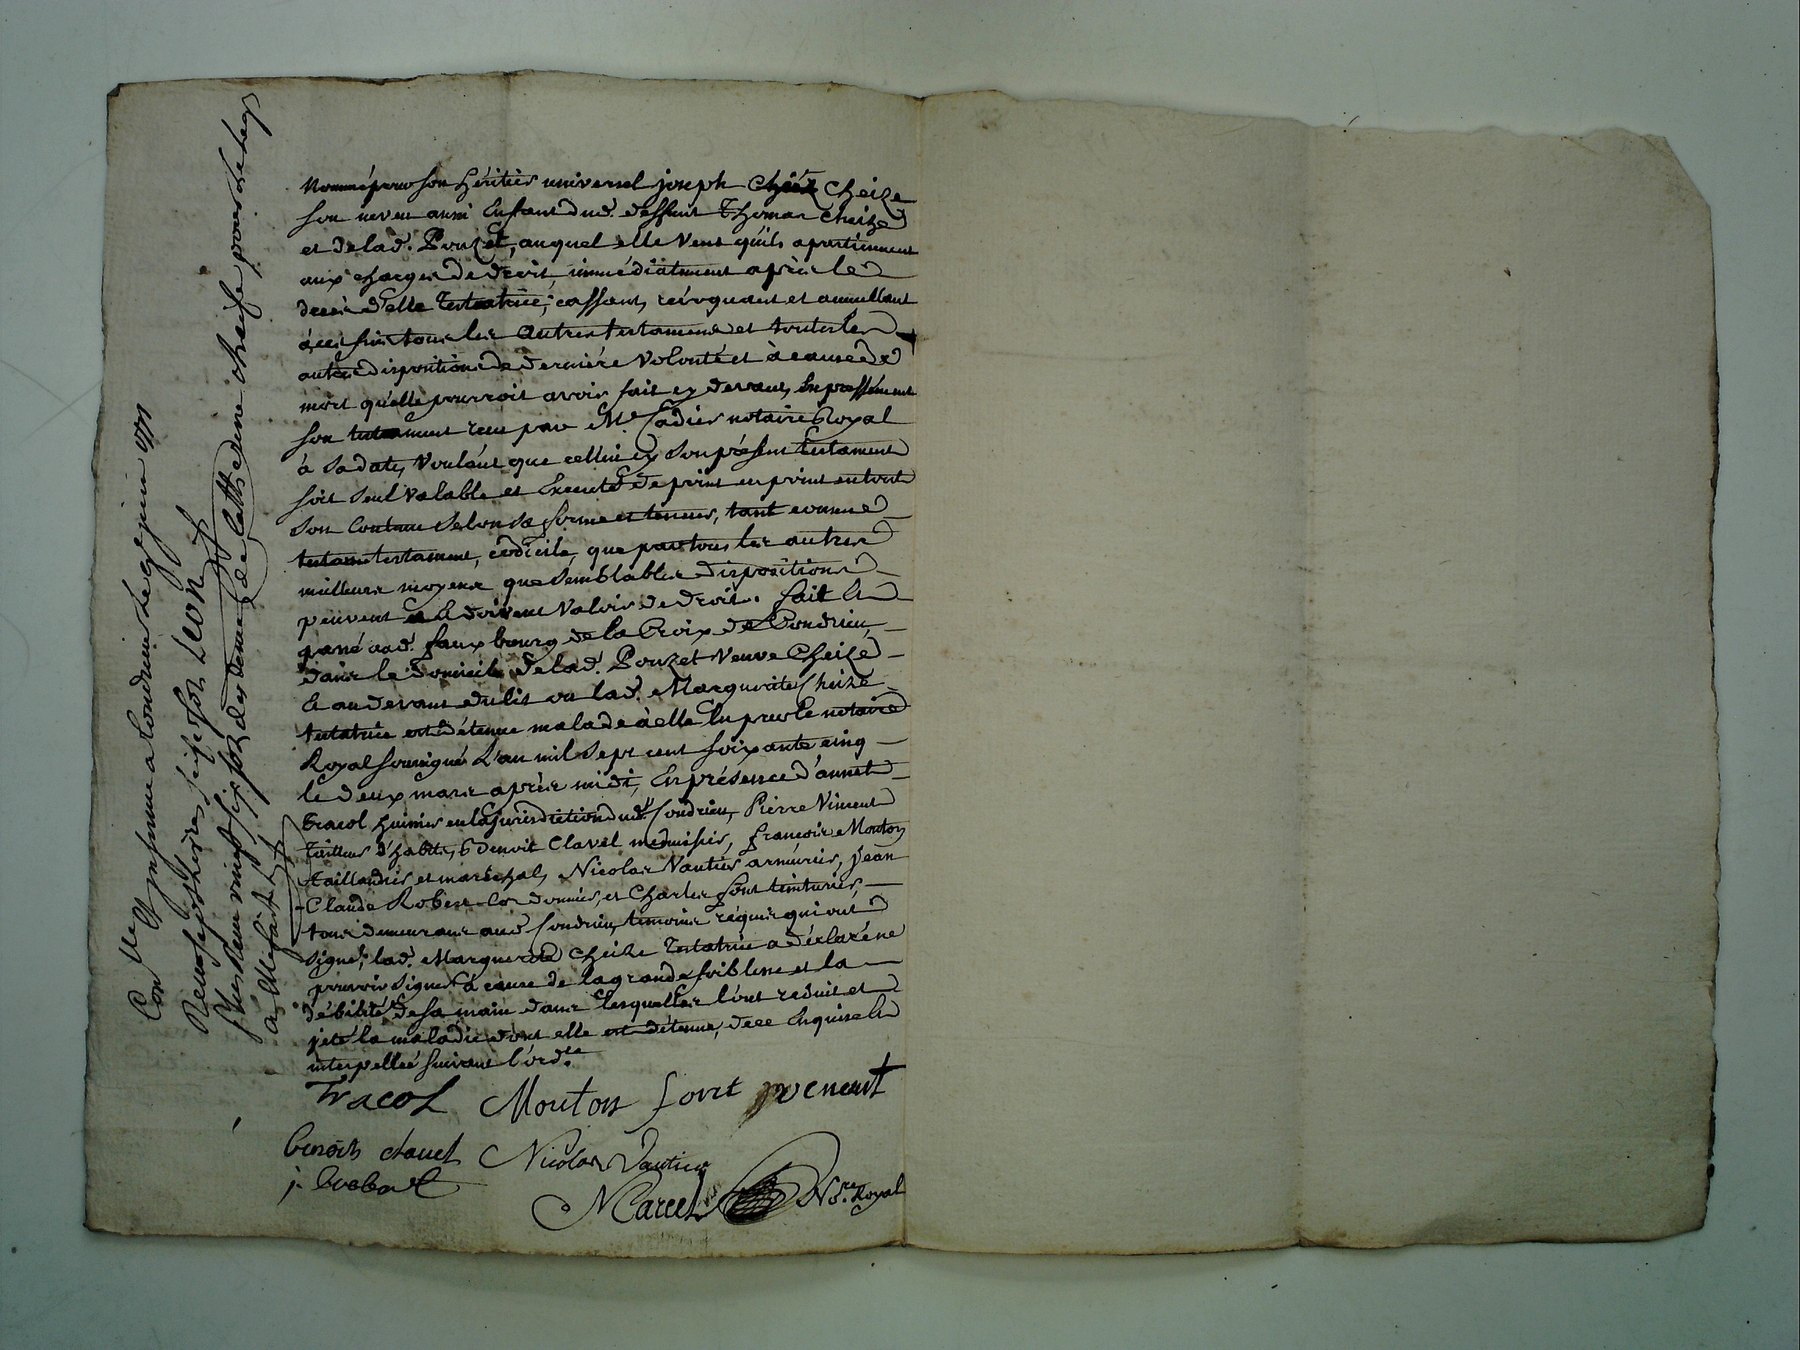 Nommé pour son héritier universel joseph Cheize
son neveu aussi Enfant dud. deffunt Thomas Cheize
et delad. Pouzet, auquel elle veut quils apartiennent
aux charges de droit, immédiatment après le
decès d'elle Testatrice, cassant, révoquant et annullant
à ces fins tous les autres testaments et toutes les
autres dispositions de dernière volonté et à cause de
mort qu'elle pourroit avoir fait cy devant, Expressément
son testament reçu par Me. Cadier notaire Royal
à sa date, voulant que cellui cy son présent testament
soit seul valable et Executé de point en point en tout
son Contenu selon sa forme et teneur, tant comme
testament, codicile, que par tous les autres
meilleurs moyens que semblables dispositions
peuvent et doivent valoir de droit. fait et
passé aud. faux bourg de la Croix de Condrieu,
dans le domicile delad. Pouzet veuve Cheize
et au devant du lit ou lad. Marguerite Cheize
testatrice est détenue malade à elle lu par le notaire
Royal soussigné L'an mil sept cent soixante cinq
le deux mars après midi, En présence d'annet
Tracol huissier en la jurisdiction dud. Condrieu, Pierre Vincent
Tailleur d'habits, Benoit Clavel menuisier, françois Mouton
Taillandier et maréchal, Nicolas Vautier armurier, jean
Claude Robert Cordonnier, et Charles font teinturier,
tous demeurant aud. Condrieu, temoins requis qui ont
signé, lad. Marguerite Cheize Testatrice a déclaré ne
pouvoir signer à cause de la grande foiblesse et la
débilité de sa main dans lesquelles l'ont reduit et
jeté la maladie dont elle est détenue, de ce Enquise et
interpellée suivant l'ord.ce
Tracol Mouton font vincent
benoit clavel Nicolas Vautier
j. Robert
Marcel No.re Royal
Con
a Condrieu le 9 juin 1771
Reçu